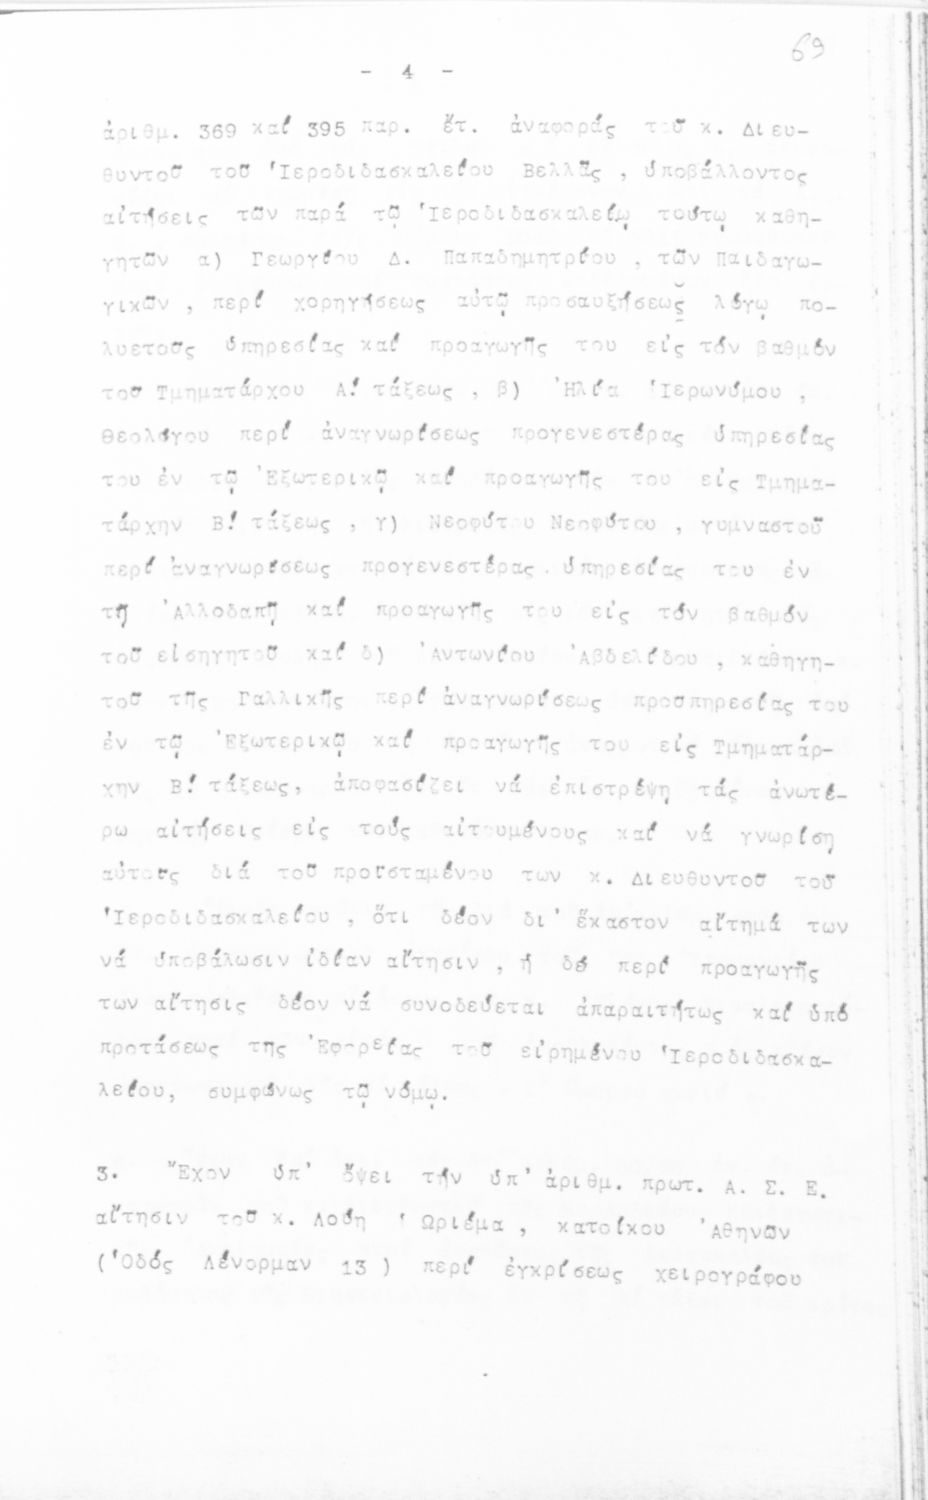 69
- 4 -
ἀριθμ. 369 καί 395 παρ. ἔτ. ἀναφοράς τοῦ κ. Διευ-
θυντοῦ τοῦ Ἱεροδιδασκαλείου Βελλᾶς , ὑποβάλλοντος
αἰτήσεις τῶν παρά τῷ Ἱεροδιδασκαλείῳ τούτῳ καθη-
γητῶν α) Γεωργίου Δ. Παπαδημητρίου , τῶν Παιδαγω-
γικῶν , περί χορηγήσεως αὐτῷ προσαυξήσεως λόγῳ πο-
λυετοῦς ὑπηρεσίας καί προαγωγῆς του εἰς τόν βαθμόν
τοῦ Τμηματάρχου Α! τάξεως , β) Ἠλία Ἱερωνύμου ,
Θεολόγου περί ἀναγνωρίσεως προγενεστέρας ὑπηρεσίας
του ἐν τῷ Ἐξωτερικῷ καί προαγωγῆς του εἰς Τμημα-
τάρχην Β! τάξεως , γ) Νεοφύτου Νεοφύτου , γυμναστοῦ
περί ἀναγνωρίσεως προγενεστέρας ὑπηρεσίας του ἐν
τῇ Ἀλλοδαπῇ καί προαγωγῆς του εἰς τόν βαθμόν
τοῦ εἰσηγητοῦ καί δ) Ἀντωνίου Ἀβδελίδου , καθηγη-
τοῦ τῆς Γαλλικῆς περί ἀναγνωρίσεως προσπηρεσίας του
ἐν τῷ Ἐξωτερικῷ καί προαγωγῆς του εἰς Τμηματάρ-
χην Β! τάξεως, ἀποφασίζει νά ἐπιστρέψῃ τάς ἀνωτέ-
ρω αἰτήσεις εἰς τούς αἰτουμένους καί νά γνωρίσῃ
αὐτούς διά τοῦ προϊσταμένου των κ. Διευθυντοῦ τοῦ
Ἱεροδιδασκαλείου , ὅτι δέον δι' ἕκαστον αἴτημά των
νά ὑποβάλωσιν ἰδίαν αἴτησιν , ἡ δέ περί προαγωγῆς
των αἴτησις δέον νά συνοδεύεται ἀπαραιτήτως καί ὑπό
προτάσεως της Ἐφορείας τοῦ εἰρημένου Ἱεροδιδασκα-
λείου, συμφώνως τῷ νόμῳ.
3. Ἔχον ὑπ' ὄψει τήν ὑπ' ἀριθμ. πρωτ. Α. Σ. Ε.
αἴτησιν τοῦ κ. Λούη Ὡριέμα , κατοίκου Ἀθηνῶν
(Ὁδός Λένορμαν 13 ) περί ἐγκρίσεως χειρογράφου